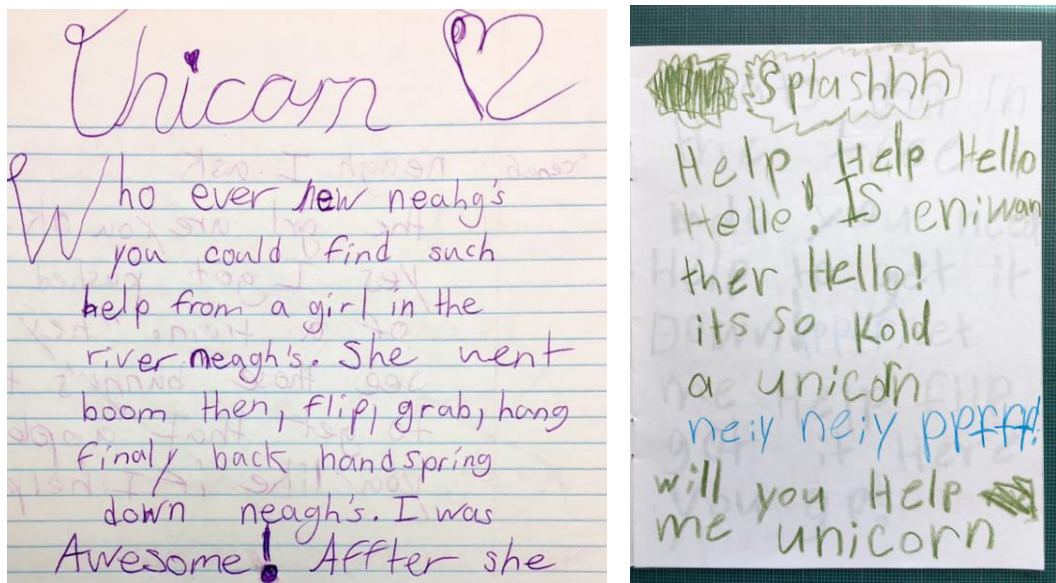 Unicorn
Who ever new neahg's
you could find such
help from a girl in the
river neagh's. She went
boom then, flip, grab, hang
finaly back handspring
down neagh's. I was
Awesome! Affter she
Splashhh
Help Help Hello
Helle! IS eniwan
ther Hello!
its so kold
a unicorn
neiy neiy ppffff!
will you Help
me unicorn